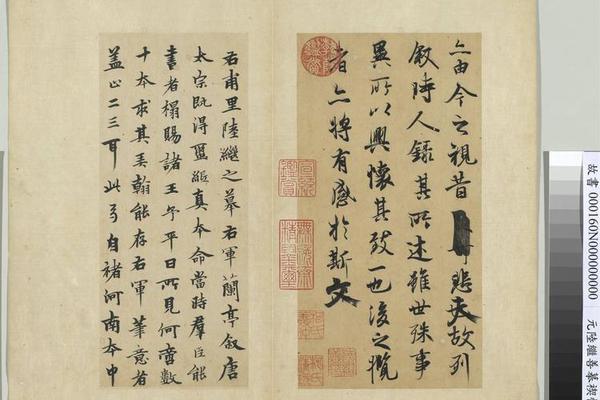 亦由今之視昔悲夫故列
敘時人錄其所述雖世殊事
異所以興懷其致一也後之攬
者亦將有感於斯文
右甫里陸繼之摹右軍蘭亭敘唐
太宗既得璽紙真本命當時群臣能
書者榻賜諸王余平日所見何啻數
十本求其弄翰能存右軍筆意者
蓋止二三耳此為自褚河南本中
故書 000160N000000000
元陸繼善摹禊